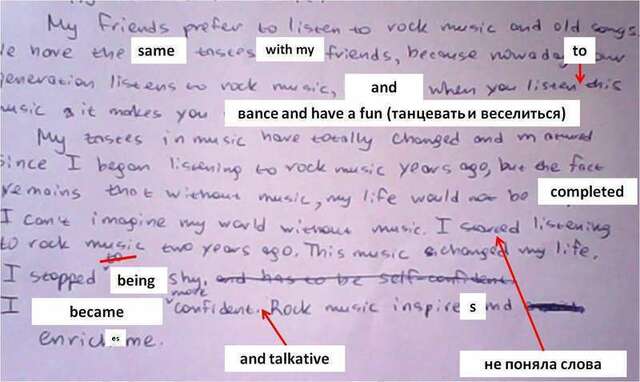 My friends prefer to listen to rock music and old songs.
We have the same tastes with my friends, because nowadays our to
generation listens to rock music, and when you listen this
music it makes you
вance and have a fun (танцевать и веселиться)
My tastes in music have totally changed and matured
since I began listening to rock music years ago, but the fact
remains that without music, my life would not be completed
I can't imagine my world without music. I listening
to rock music two years ago. This music changed my life.
I stopped to being shy, and has to be self-confident.
I became more confident. Rock music inspires and
enriches me.
and talkative
не поняла слова